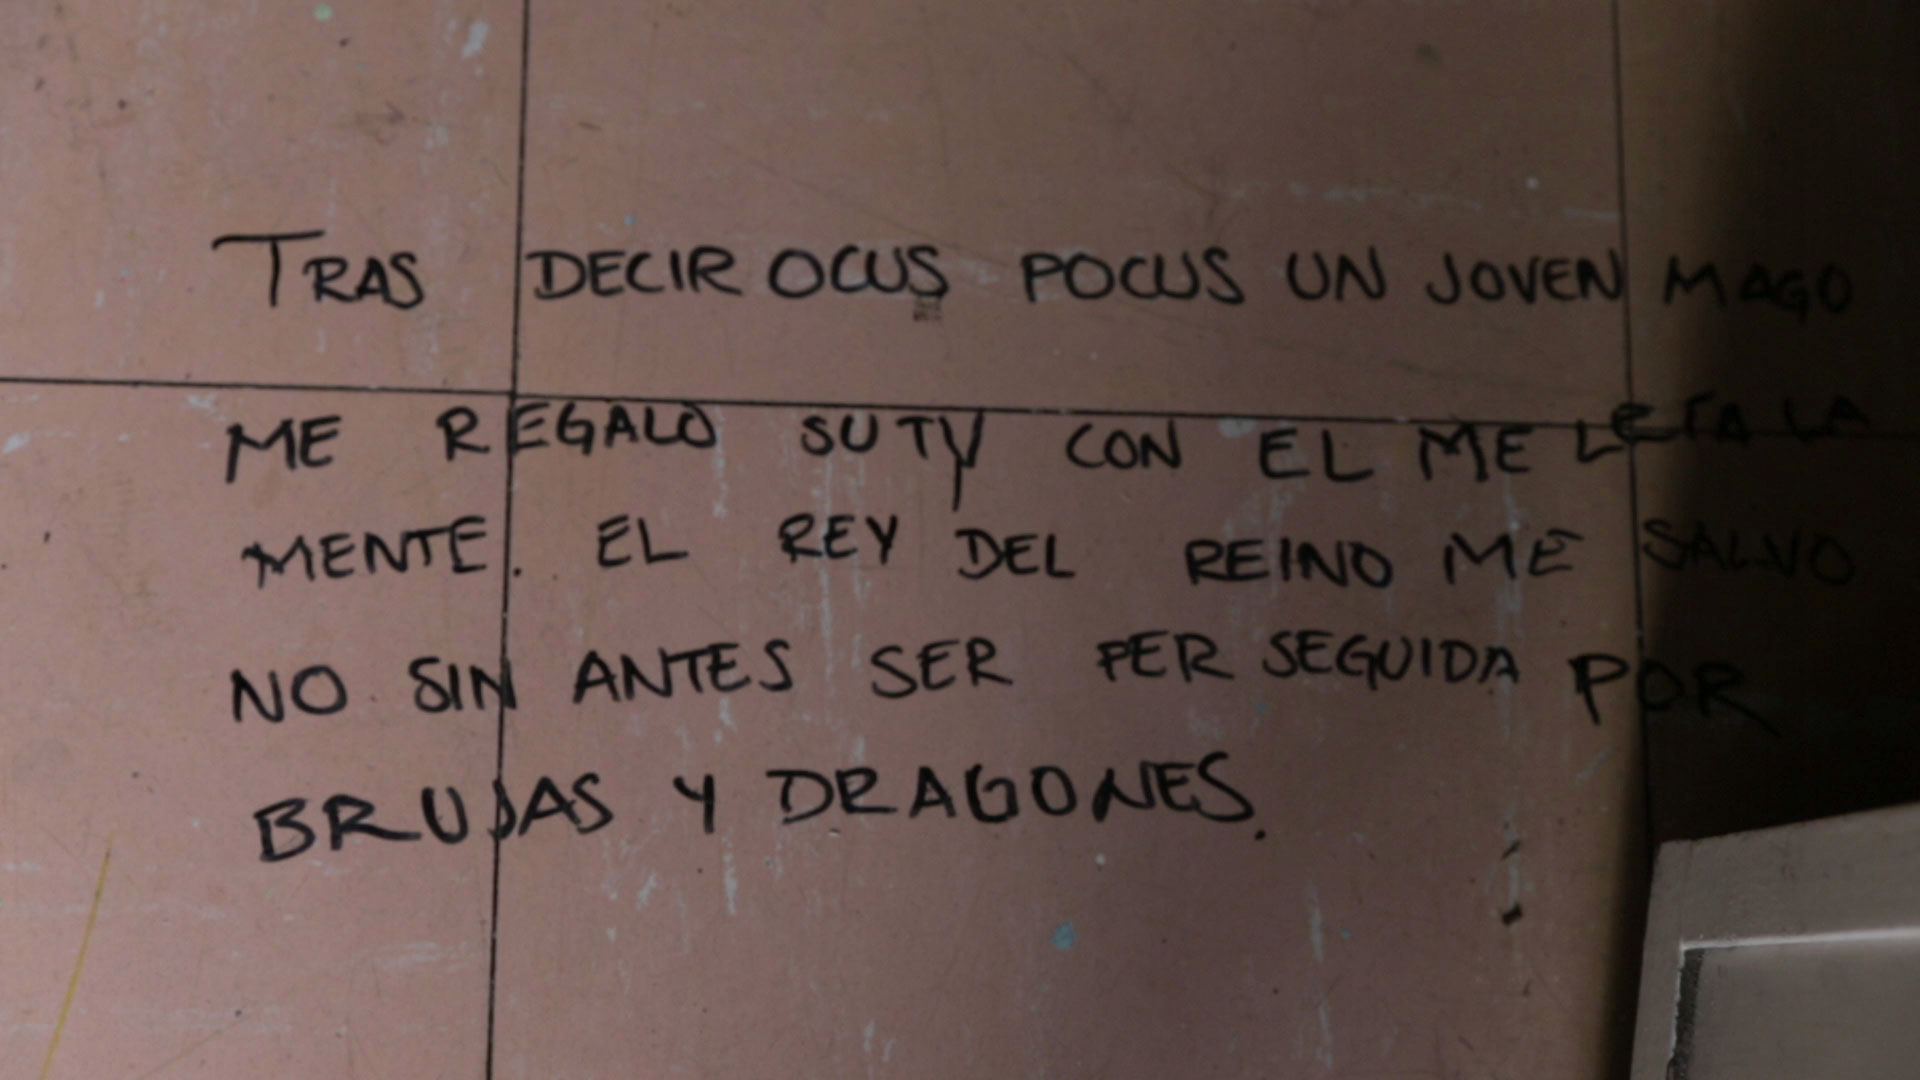 TRAS DECIR OCUS POCUS UN JOVEN MAGO
ME REGALO SU TV CON EL ME LEIA LA
MENTE. EL REY DEL REINO ME SALVO
NO SIN ANTES SER PERSEGUIDA POR
BRUJAS Y DRAGONES.